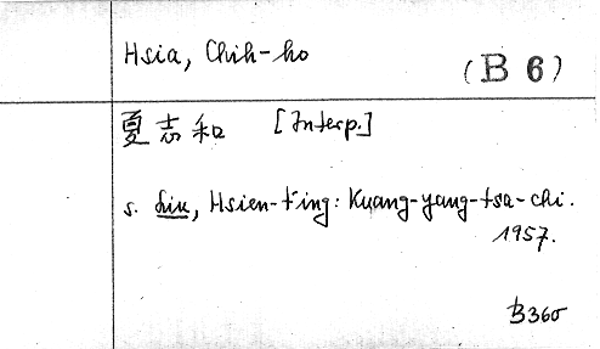 Hsia, Chih-ho
(B 6)
夏志和 [Interp.]
s. Liu, Hsien-t'ing: Kuang-yang-tsa-chi.
1957.
B360